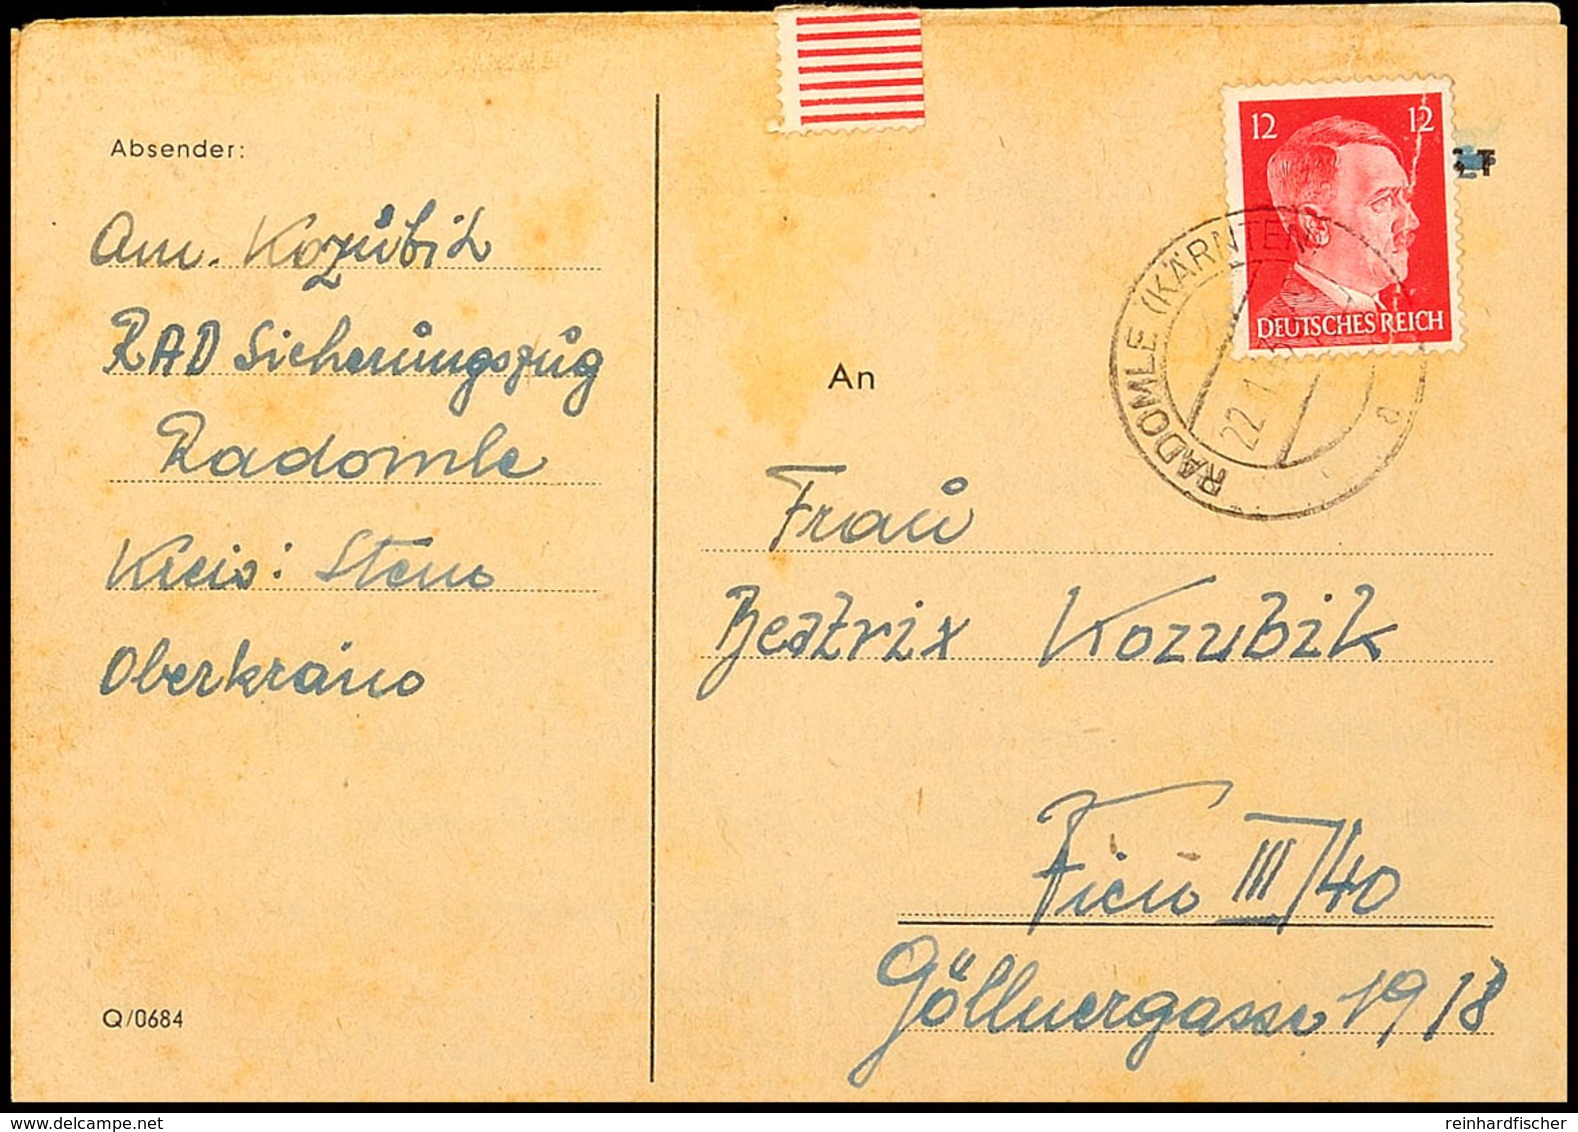 Absender:
Am. Kozubik
RAD Sicherungszug
Radomle
Kreis: Stein
Oberkrain
Q/0684
12 12
DEUTSCHES REICH
RADOMLE (KÄRNTEN)
22.1.
a
An
Frau
Beatrix Kozubik
Wien III/40
Göllnergasse 19/8
reinhardfischer